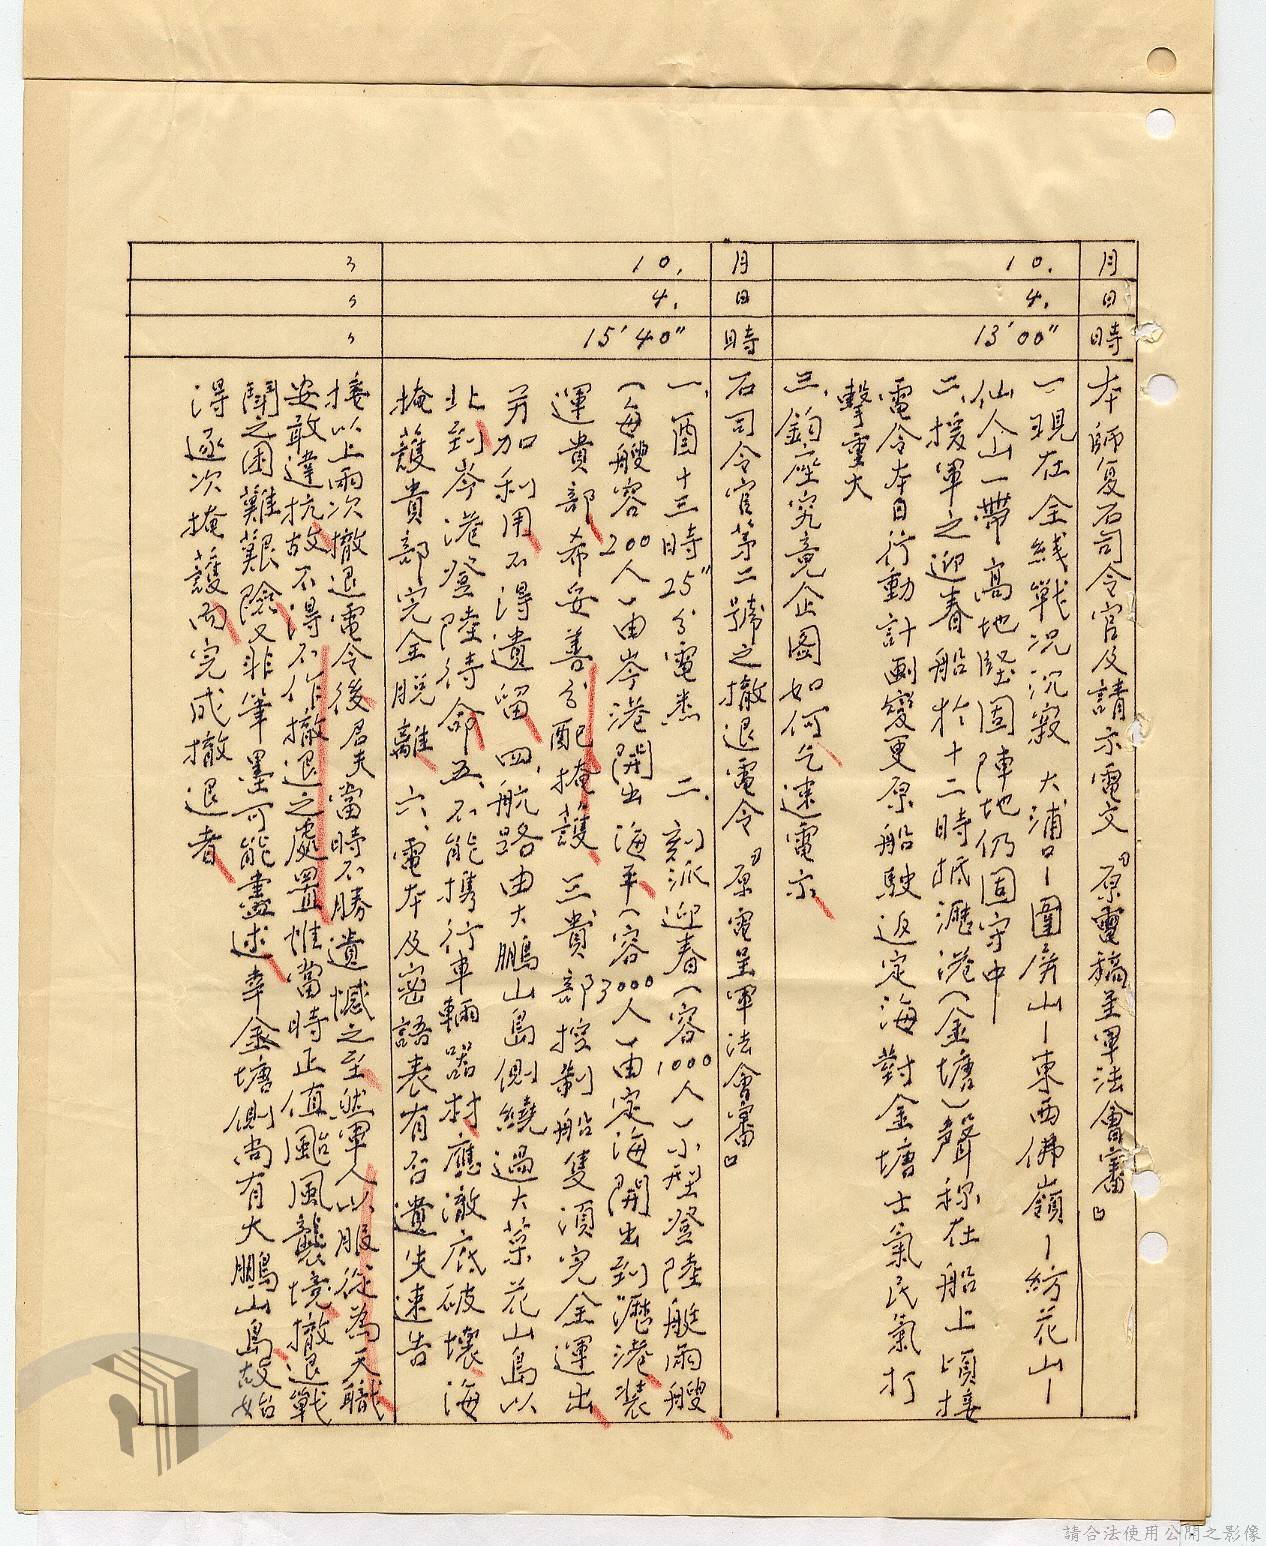 月 日 時 本師复石司令官及請示電文『原電稿呈軍法會審』
10. 4. 13'00"
一現在全线戰况沉寂 大浦口—圍屏山—東西佛嶺—紡花山—
仙人山一帶高地堅固陣地仍固守中
二、援軍之迎春船於十二時抵瀝港(金塘)聲称在船上頃接
電令本日行動計劃變更原船駛返定海對金塘士氣民氣打
擊重大
三、鈞座究竟企圖如何乞速電示
月 日 時 石司令官第二號之撤退電令『原電呈軍法會審』
10. 4. 15'40"
一、酉十三時25"分電悉 二、刻派迎春(容1000人)小型登陸艇兩艘
(每艘容200人)由岑港開出 海平(容3000人)由定海開出到瀝港裝
運貴部希妥善分配掩護 三貴部控制船隻須完全運出
并加利用不得遺留 四、航路由大鵬山島側繞過大菜花山島以
北到岑港登陸待命 五、不能携行車輛器材應澈底破壞海
掩護貴部完全脫離 六、電本及密語表有否遺失速告
接以上兩次撤退電令後君夫當時不勝遺憾之至然軍人以服從為天職
安敢違抗故不得不作撤退之處置惟當時正值颱風襲境撤退戰
鬪之困難艱險又非筆墨可能盡述幸金塘側尚有大鵬山島故始
得逐次掩護而完成撤退者
請合法使用公開之影像